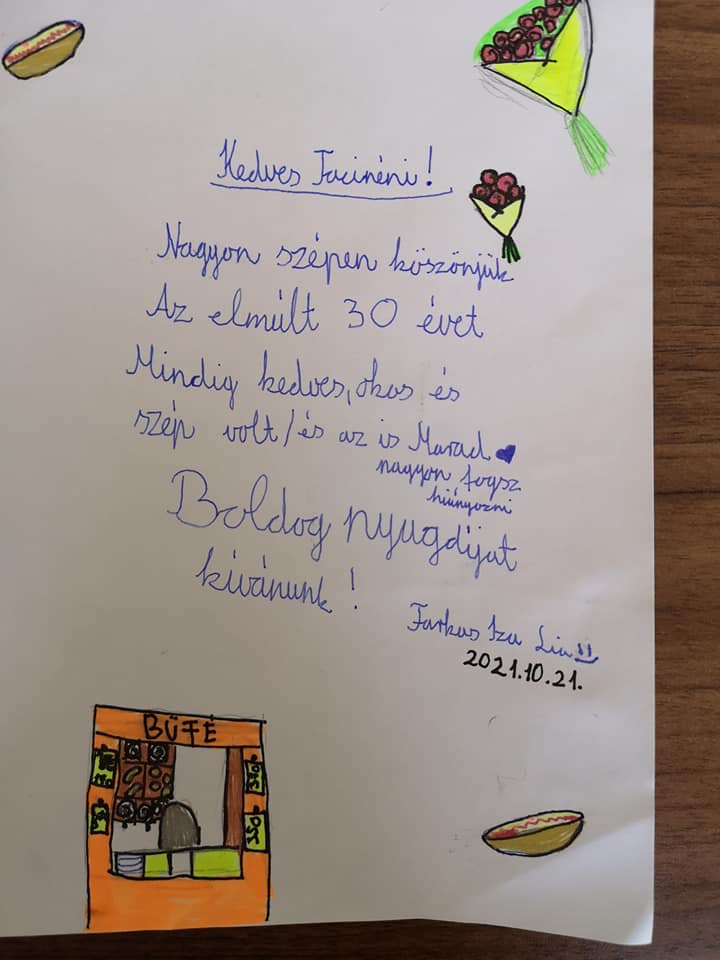 Kedves Jacinéni!
Nagyon szépen köszönjük
Az elmúlt 30 évet
Mindig kedves, okos és
szép volt/és az is Marad
nagyon fogsz
hiányozni
Boldog nyugdíjat
kívánunk!
Farkas Iza Lia
2021.10.21.
BÜFÉ
350